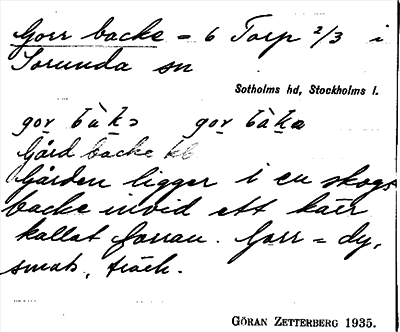 Gorr backe = 6 Torp 2/3 i
Sorunda sn
Sotholms hd, Stockholms l.
gor bàkə gor bàka
Gård backe kl
Gården ligger i en skogs
backe invid ett kärr
kallat Gorran. Gorr = dy,
smuts, träck.
GÖRAN ZETTERBERG 1935.